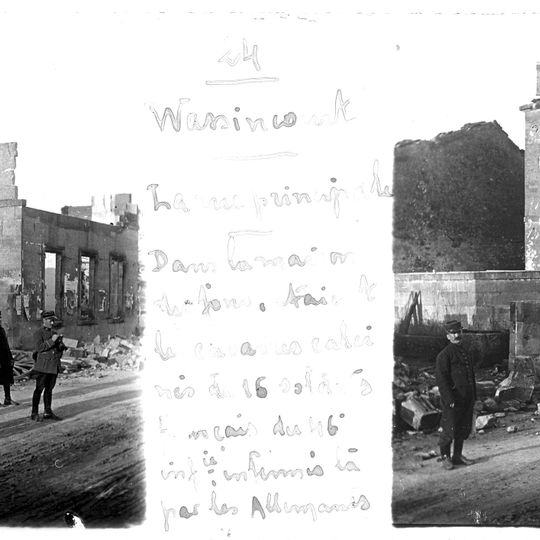 24
Wassincourt
La rue principale
Dans la maison
du fond, était
le cadavres calci
nés de 16 soldats
français du 46e
infie internés là
par les Allemands